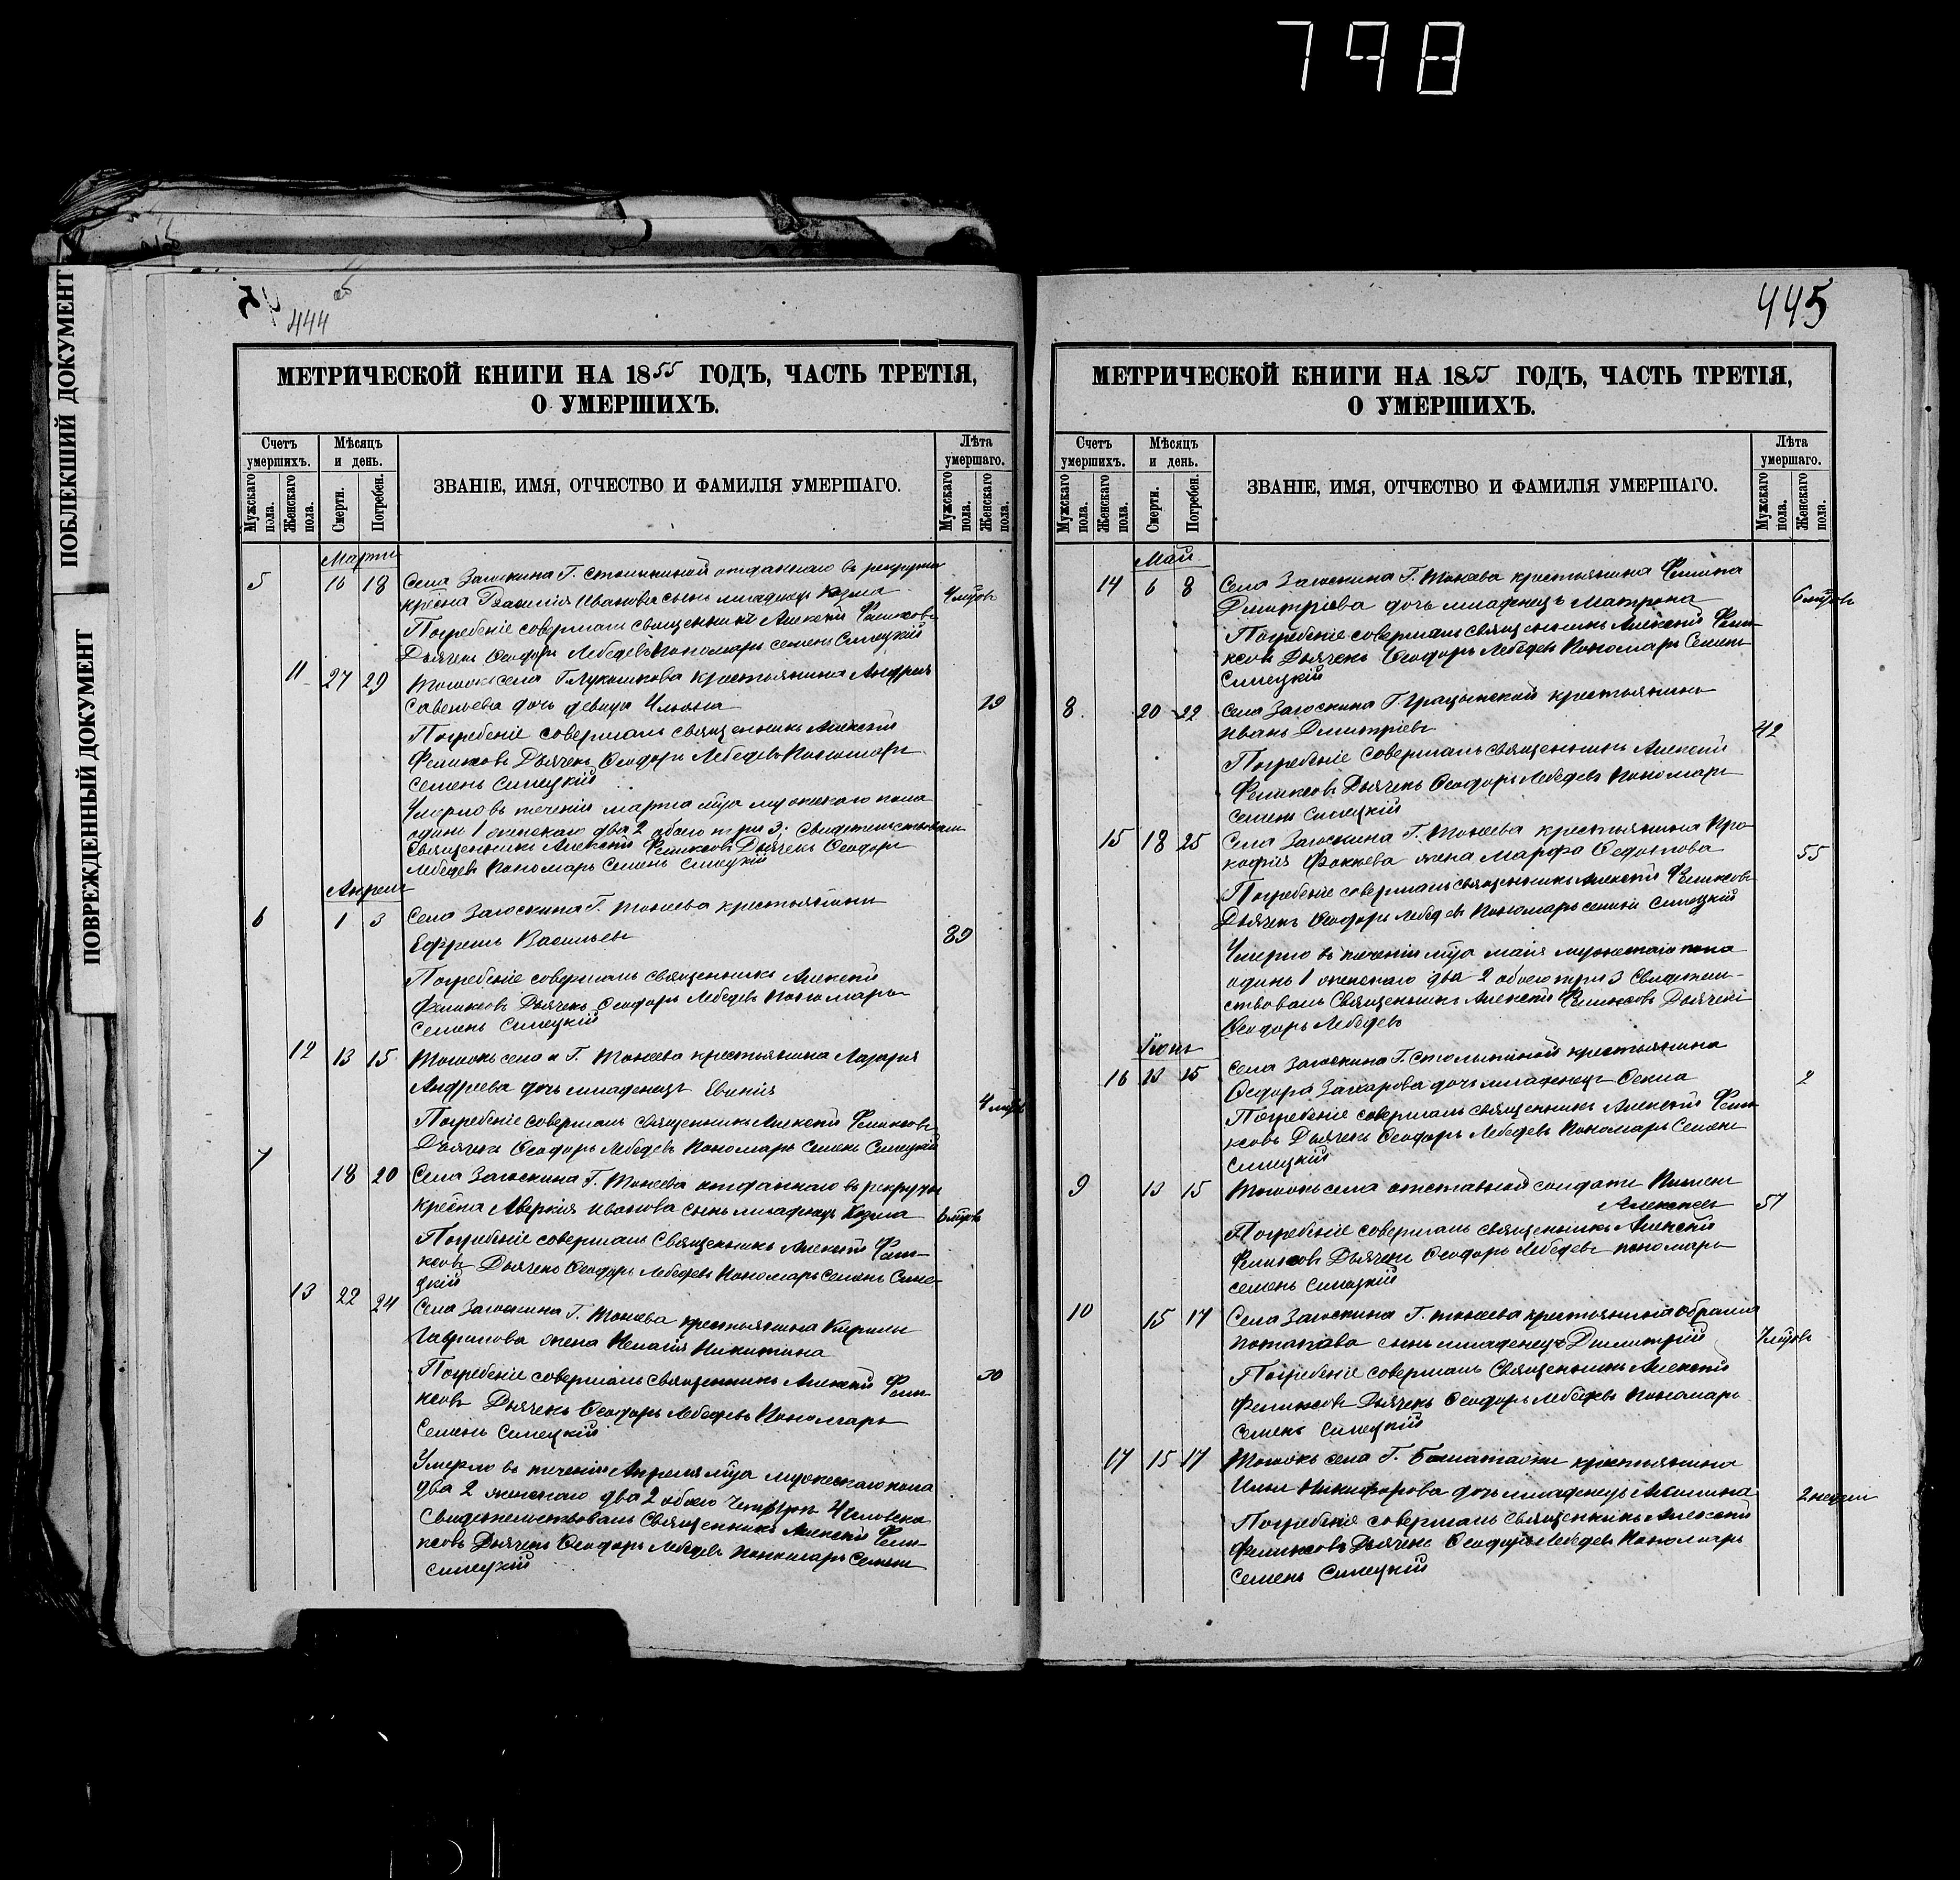 798
ПОБЛЕКШИЙ ДОКУМЕНТ
ПОВРЕЖДЕННЫЙ ДОКУМЕНТ
444
МЕТРИЧЕСКОЙ КНИГИ НА 1855 ГОДЪ, ЧАСТЬ ТРЕТІЯ,
О УМЕРШИХЪ.
Счетъ умершихъ.
Мѣсяцъ и день.
ЗВАНІЕ, ИМЯ, ОТЧЕСТВО И ФАМИЛІЯ УМЕРШАГО.
Лѣта умершаго.
Мужскаго пола.
Женскаго пола.
Смерти.
Погребен.
Мужскаго пола.
Женскаго пола.
Марта
5 16 18 Села Загоскина Г. Столыпиной отданнаго въ рекруты
крестна Василія Иванова сынъ младенец Козма 4 мцовъ
Погребеніе совершалъ священникъ Алексѣй Феликсовъ
Дьячекъ Ѳеодоръ Лебедевъ Пономарь Семенъ Силецкій
11 27 29 Тогожъ села Г. Лукошкова крестьянина Андрея
Савельева дочь девица Ульяна 19
Погребеніе совершалъ священникъ Алексѣй
Феликсовъ Дьячекъ Ѳеодоръ Лебедевъ Пономарь
Семенъ Силецкій
Умерло въ теченіи марта мца мужескаго пола
одинъ 1 женскаго два 2 обоего три 3; Свидетельствовали
Священникъ Алексѣй Феликсовъ Дьячекъ Ѳеодоръ
Лебедевъ Пономарь Семенъ Силецкій
Апреля
6 1 3 Села Загоскина Г. Мокеева крестьянинъ
Ефремъ Васильевъ 89
Погребеніе совершалъ священникъ Алексѣй
Феликсовъ Дьячекъ Ѳеодоръ Лебедевъ Пономарь
Семенъ Силецкій
12 13 15 Тогожъ села Г. Мокеева крестьянина Лазаря
Андреева дочь младенецъ Евгенія 4 мцовъ
Погребеніе совершалъ священникъ Алексѣй Феликсовъ
Дьячекъ Ѳеодоръ Лебедевъ Пономарь Семенъ Силецкій
7 18 20 Села Загоскина Г. Мокеева отданнаго въ рекруты
крестна Аверкія Иванова сынъ младенецъ Козма 6 мцовъ
Погребеніе совершалъ Священникъ Алексѣй Фели-
ксовъ Дьячекъ Ѳеодоръ Лебедевъ Пономарь Семенъ Силе-
цкій
13 22 24 Села Загоскина Г. Мокеева крестьянина Кирилы
Гаврилова жена Пелагія Никитина 30
Погребеніе совершалъ священникъ Алексѣй Фели-
ксовъ Дьячекъ Ѳеодоръ Лебедевъ Пономарь
Семенъ Силецкій
Умерло въ теченіи Апреля мца мужескаго пола
два 2 женскаго два 2 обоего четыре 4 человека
Свидетельствовали Священникъ Алексѣй Фели-
ксовъ Дьячекъ Ѳеодоръ Лебедевъ Пономарь Семенъ
Силецкій
445
МЕТРИЧЕСКОЙ КНИГИ НА 1855 ГОДЪ, ЧАСТЬ ТРЕТІЯ,
О УМЕРШИХЪ.
Счетъ умершихъ.
Мѣсяцъ и день.
ЗВАНІЕ, ИМЯ, ОТЧЕСТВО И ФАМИЛІЯ УМЕРШАГО.
Лѣта умершаго.
Мужскаго пола.
Женскаго пола.
Смерти.
Погребен.
Мужскаго пола.
Женскаго пола.
Май
14 6 8 Села Загоскина Г. Мокеева крестьянина Филипа
Димитріева дочь младенецъ Матрона 6 мцовъ
Погребеніе совершалъ священникъ Алексѣй Фели-
ксовъ Дьячекъ Ѳеодоръ Лебедевъ Пономарь Семенъ
Силецкій
8 20 22 Села Загоскина крестьянинъ
Иванъ Димитріевъ 42
Погребеніе совершалъ священникъ Алексѣй
Феликсовъ Дьячекъ Ѳеодоръ Лебедевъ Пономарь
Семенъ Силецкій
15 18 25 Села Загоскина Г. Мокеева крестьянина Про-
кофія Фокеева жена Марфа Ѳедотова 55
Погребеніе совершалъ священникъ Алексѣй Феликсовъ
Дьячекъ Ѳеодоръ Лебедевъ Пономарь Семенъ Силецкій
Умерло въ теченіи мца маія мужескаго пола
одинъ 1 женскаго два 2 обоего три 3 Свидетель-
ствовалъ Священникъ Алексѣй Феликсовъ Дьячекъ
Ѳеодоръ Лебедевъ
Іюнь
16 13 15 Села Загоскина Г. Столыпиной крестьянина
Ѳедора Захарова дочь младенецъ Ѳекла 2
Погребеніе совершалъ священникъ Алексѣй Фели-
ксовъ Дьячекъ Ѳеодоръ Лебедевъ Пономарь Семенъ
Силецкій
9 13 15 Тогожъ села отставной солдатъ Пименъ
Алексеевъ 57
Погребеніе совершалъ священникъ Алексѣй
Феликсовъ Дьячекъ Ѳеодоръ Лебедевъ пономарь
Семенъ Силецкій
10 15 17 Села Загоскина Г. Мокеева крестьянина Абрама
Потапова сынъ младенецъ Димитрій 7 мцовъ
Погребеніе совершалъ Священникъ Алексѣй
Феликсовъ Дьячекъ Ѳеодоръ Лебедевъ Пономарь
Семенъ Силецкій
17 15 17 Тогожъ села Г. крестьянина
Ильи Никифорова дочь младенецъ Акилина 2 недели
Погребеніе совершалъ священникъ Алексѣй
Феликсовъ Дьячекъ Ѳеодоръ Лебедевъ Пономарь
Семенъ Силецкій